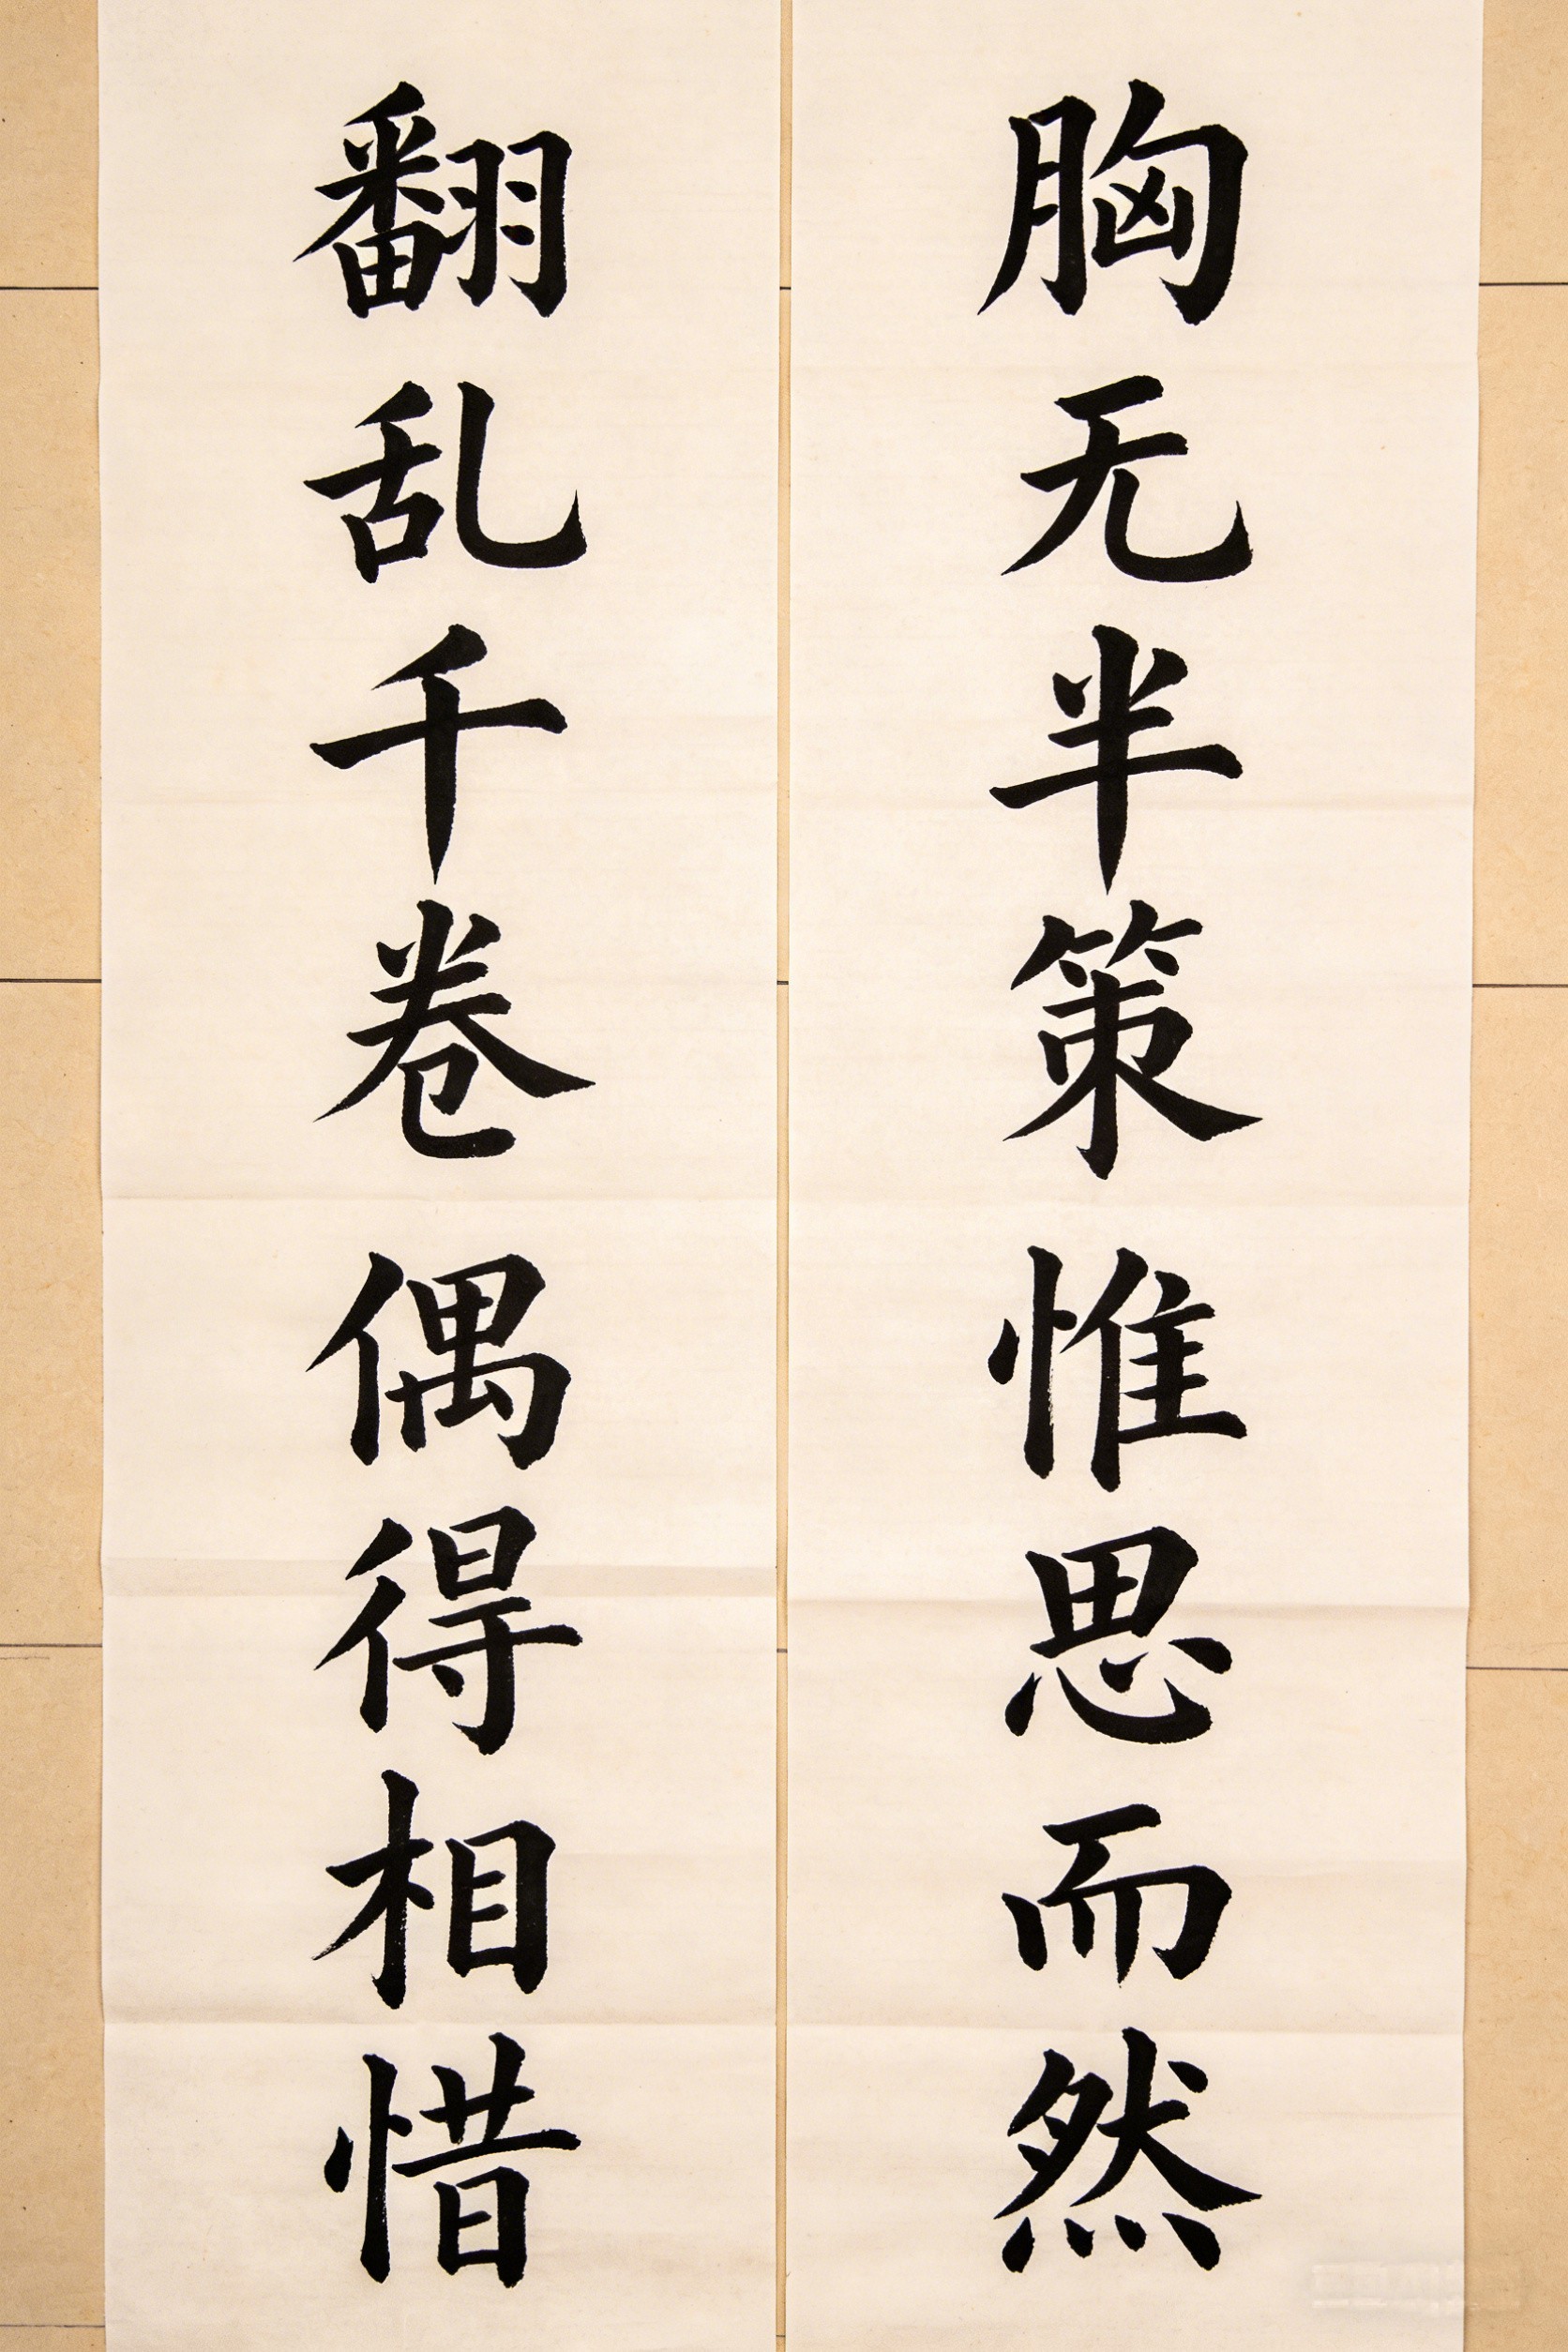 胸无半策惟思而然
翻乱千卷偶得相惜